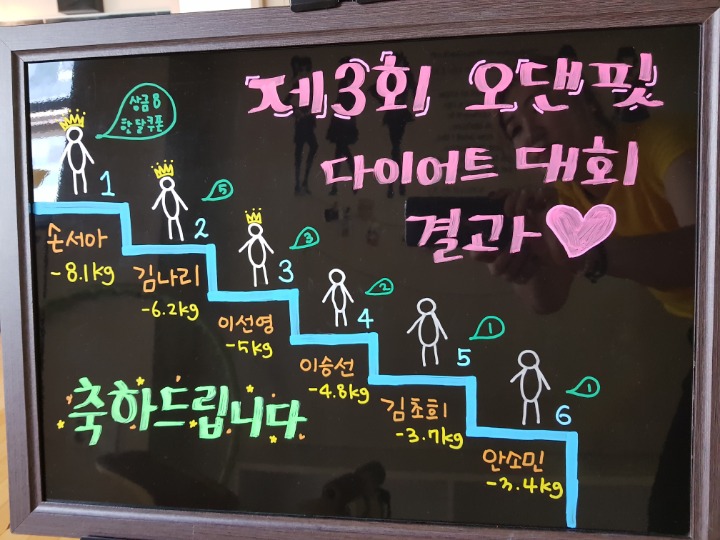 제3회 오댄핏
다이어트 대회
결과
상금 8
한달쿠폰
1
손서아
-8.1kg
5
2
김나리
-6.2kg
3
3
이선영
-5kg
2
4
이승선
-4.8kg
1
5
김초희
-3.7kg
1
6
안소민
-3.4kg
축하드립니다